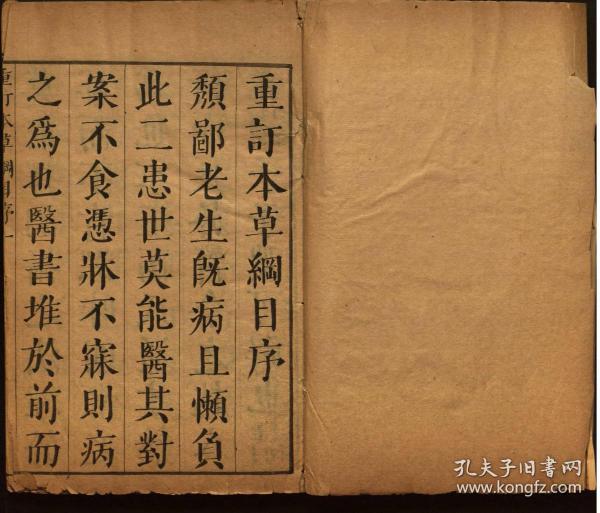 重訂本草綱目序
頽鄙老生既病且懶負
此二患世莫能醫其對
案不食憑牀不寐則病
之爲也醫書堆於前而
重訂本草綱目序一
孔夫子旧书网
www.kongfz.com